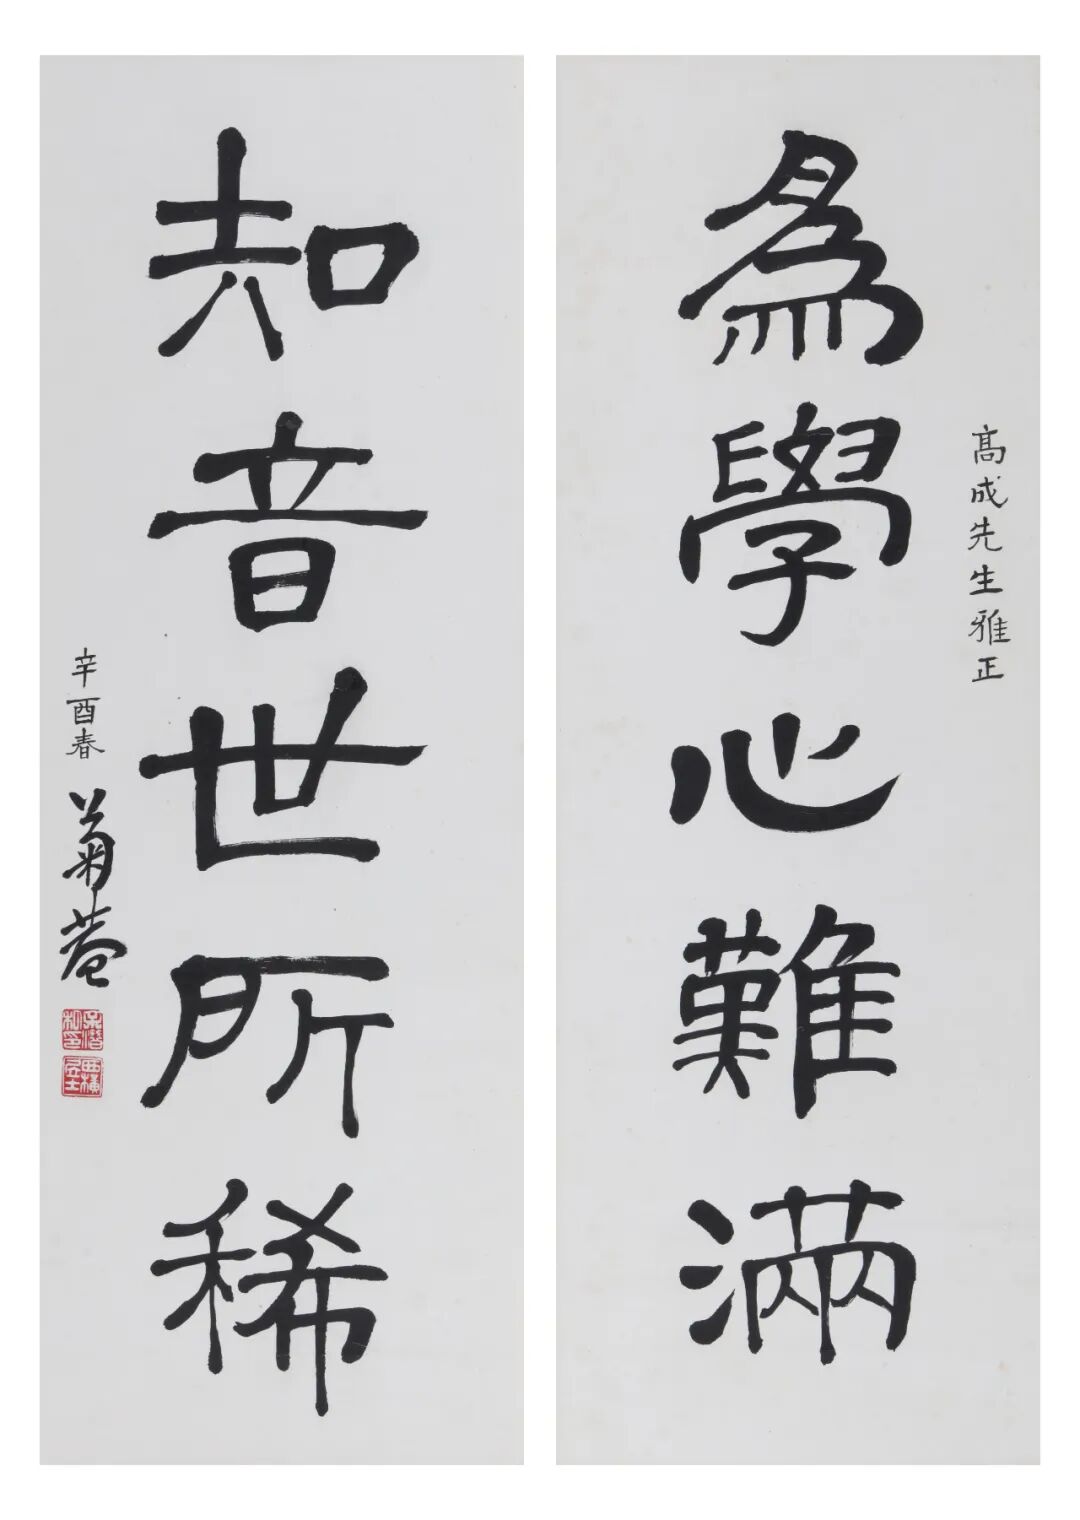 高成先生雅正
為學心難滿
知音世所稀
辛酉春
菊菴